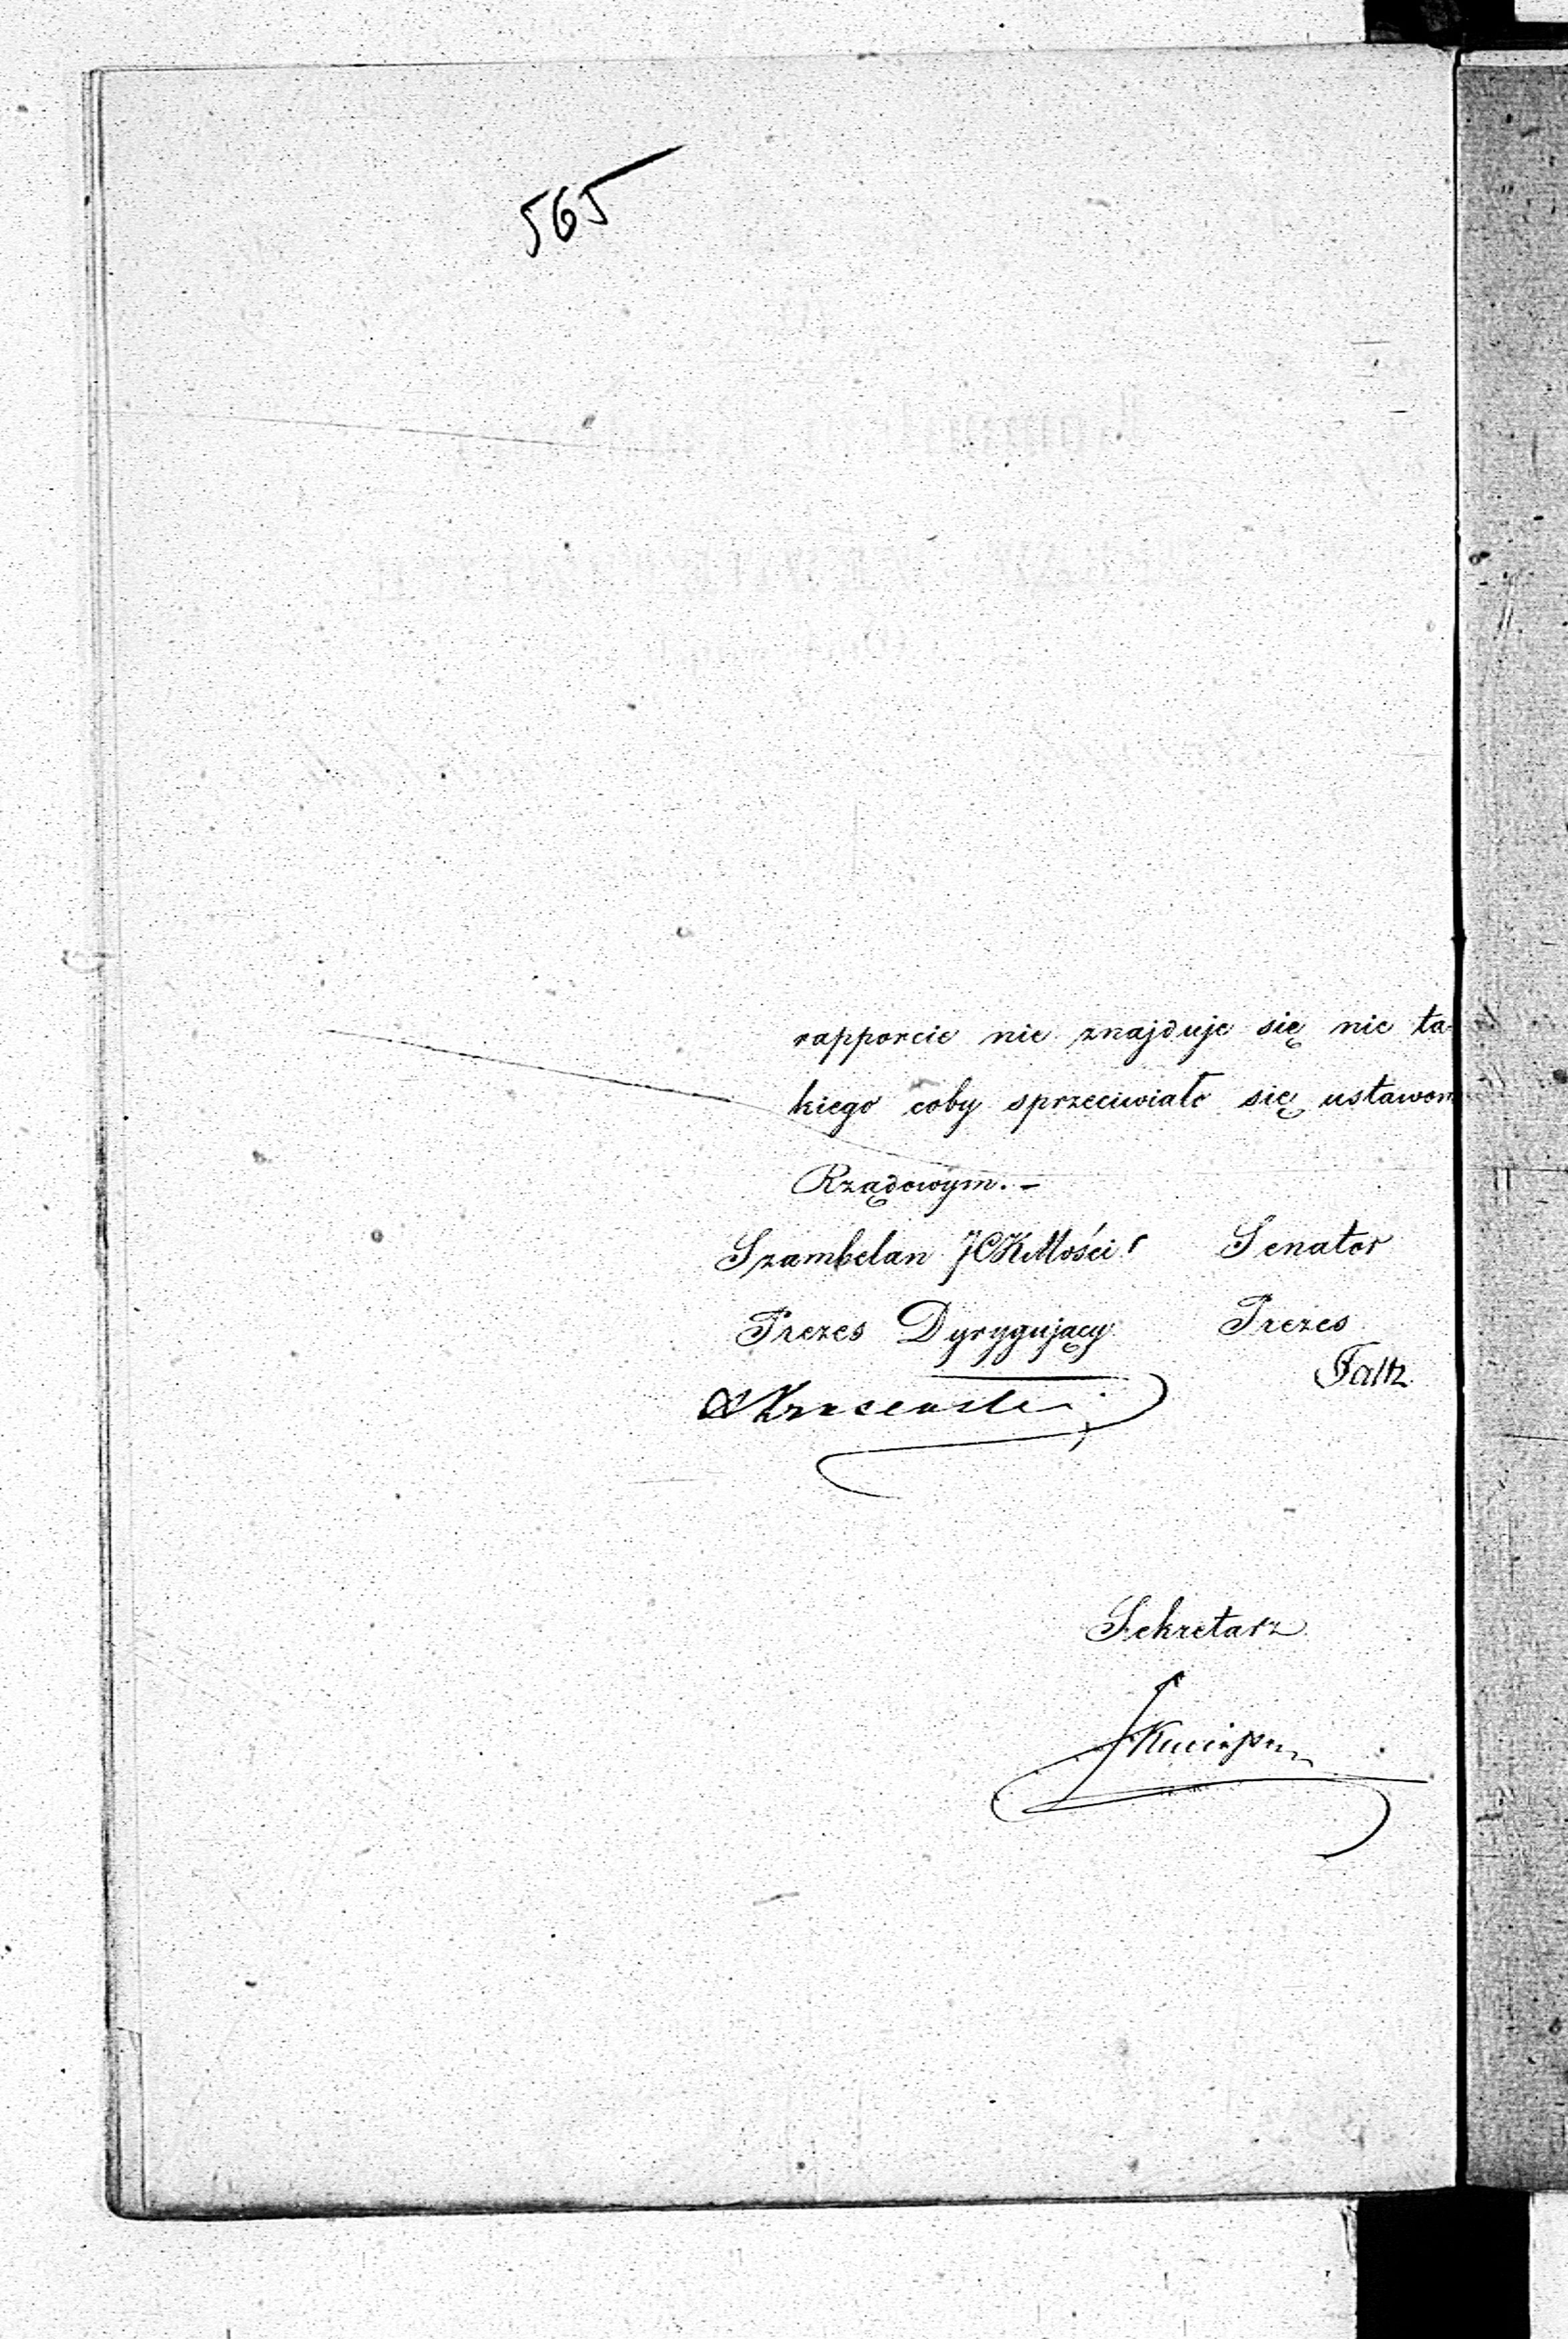 565
rapporcie nie znajduje się nic ta-
kiego coby sprzeciwiało się ustawom
Rządowym. -
Szambelan JCKMości Senator
Prezes Dyrygujący Prezes
Faltz
Sekretarz